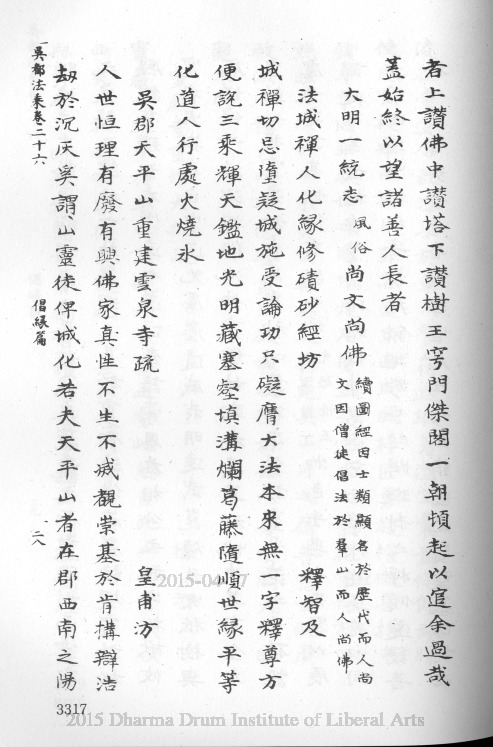 者上讚佛中讚塔下讚樹王寄門傑閣一朝頓起以寔余過哉
蓋始終以望諸善人長者
大明一統志風俗尚文尚佛續圖經因士類顯名於歷代而人尚文因僧徒倡法於群山而人尚佛
法城禪人化緣修磧砂經坊 釋智及
城禪切忌墮疑城施受論功只礙膺大法本來無一字釋尊方
便說三乘輝天鑑地光明藏塞壑填溝爛葛藤隨順世緣平等
化道人行處火燒氷
吳郡天平山重建雲泉寺疏 皇甫汸
人世恒理有廢有興佛家真性不生不滅觀崇基於肯搆辯浩
劫於沉灰奚謂山靈徒俾城化若夫天平山者在郡西南之陽
吳都法乘卷二十六
倡緣篇
二八
3317
2015-04-07
2015 Dharma Drum Institute of Liberal Arts